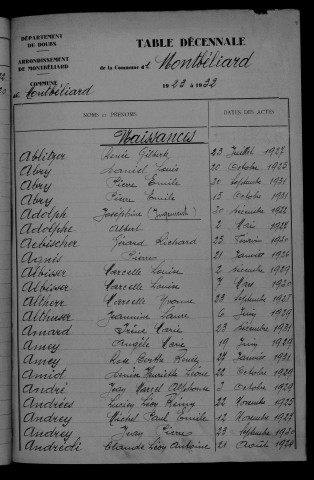 DÉPARTEMENT
DU DOUBS
ARRONDISSEMENT
DE MONTBÉLIARD
COMMUNE
de Montbéliard
TABLE DÉCENNALE
de la Commune de Montbéliard
1923 à 1932
NOMS et PRÉNOMS DATES DES ACTES
Naissances
Ablitzer Renée Gilberte 23 Juillet 1927
Abry Daniel Louis 20 Octobre 1925
Abry Pierre Emile 30 Septembre 1931
Abry Pierre Emile 13 Octobre 1931
Adolph Joséphine (Jugement) 30 Décembre 1922
Adolphe Albert 2 Mai
Aebischer Gérard Richard 25 Février 1930
Agnès Pierre 21 Janvier 1926
Albisser Marcelle Louise 2 Décembre 1929
Albisser Marcelle Louise 7 Mars 1930
Altherr Marcelle Yvonne 23 Septembre 1928
Althuser Jeannine Laure 6 Juin 1929
Amard Irène Marie 23 Décembre 1931
Amey Angèle Marie 19 Juin 1929
Amey Rose Berthe Renée 29 Janvier 1931
Amiot Denise Henriette Léone 22 Octobre 1929
André Jean Marcel Alphonse 2 Octobre 1929
Andrées Lucien Léon Rémy 22 Novembre 1925
Andrey Michel Paul Emile 12 Novembre 1927
Andrey Jean Pierre 23 Septembre 1930
Andrédi Claude Léon Antoine 21 Août 1924